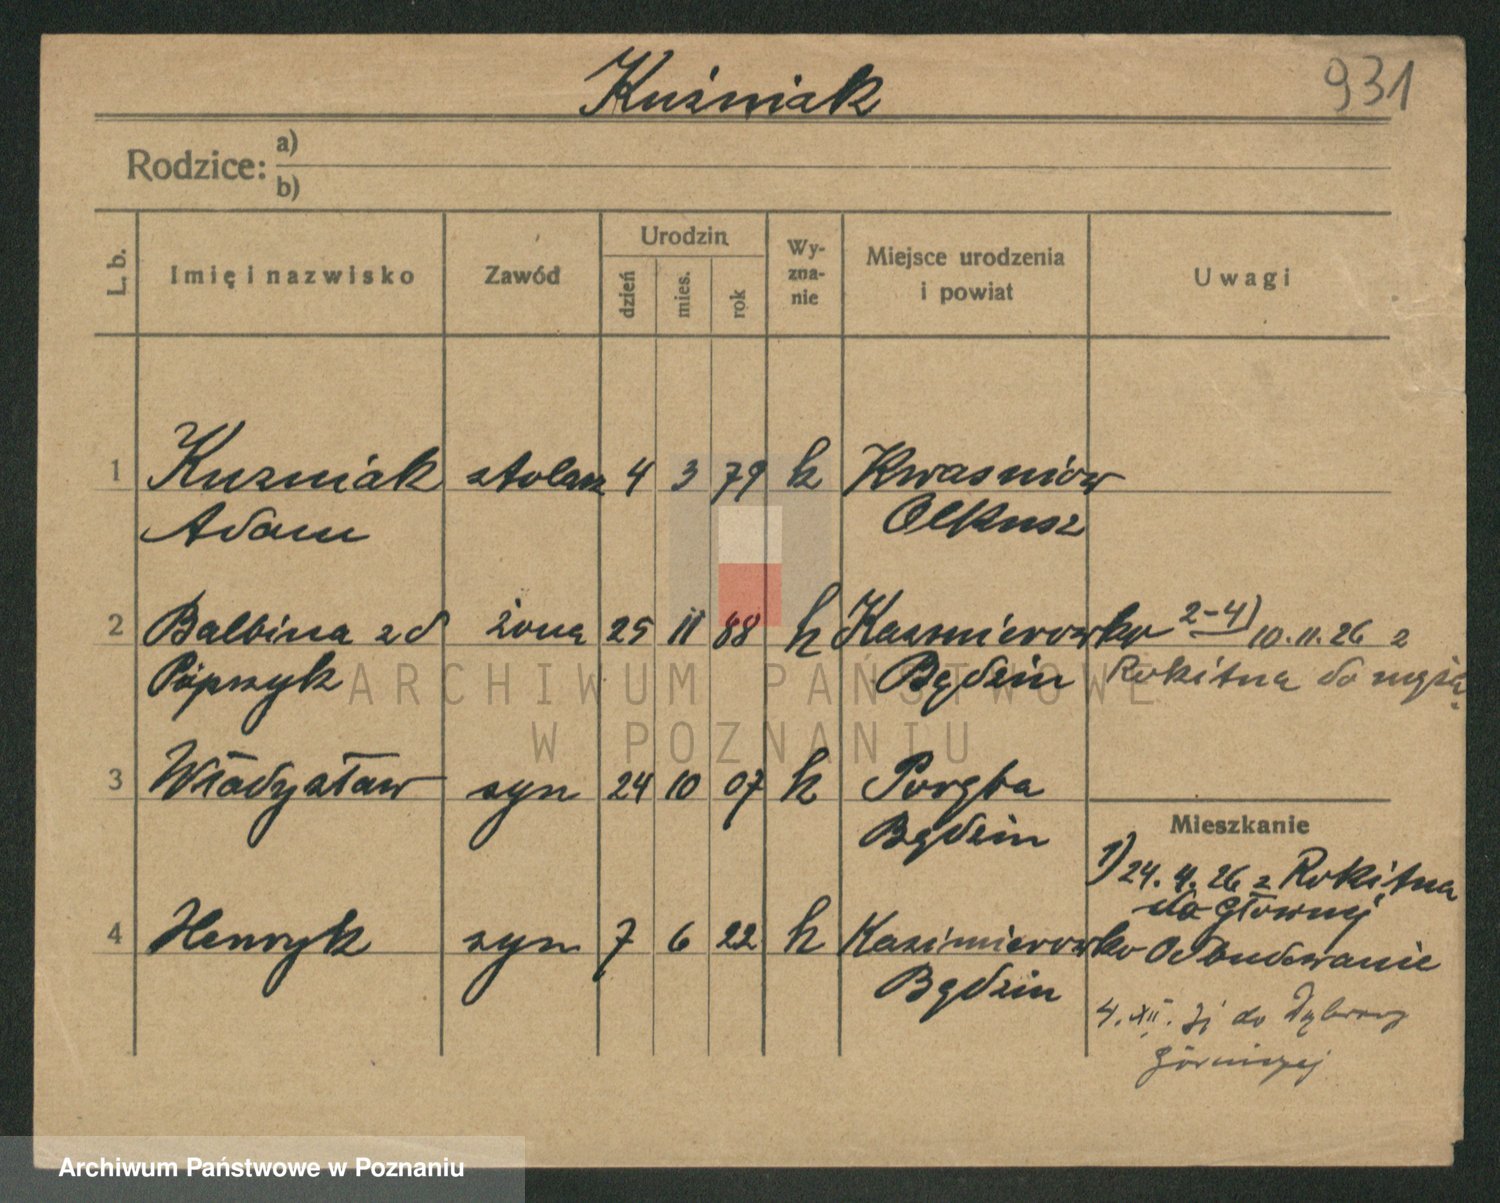 Kuźniak
931
Rodzice: a)
b)
L. b.
Imię i nazwisko
Zawód
Urodzin
dzień
mies.
rok
Wy-
zna-
nie
Miejsce urodzenia
i powiat
Uwagi
1 Kuzniak stolarz 4 3 79 k Kwasniów
Adam Olkusz
2 Balbina zd żona 25 11 88 k Kazmierowko 2-4) 10.11.26 z
Będzin Rokitna do męża
3 Władysław syn 24 10 07 k Poręba
Będzin
Mieszkanie
1) 24. 4. 26 z Rokitna
do głównej
4 Henryk syn 7 6 22 k Kazimierowko Odbudowanie
Będzin
4. XII. do Dąbrowy
górniczej
ARCHIWUM PAŃSTWOWE
W POZNANIU
Archiwum Państwowe w Poznaniu